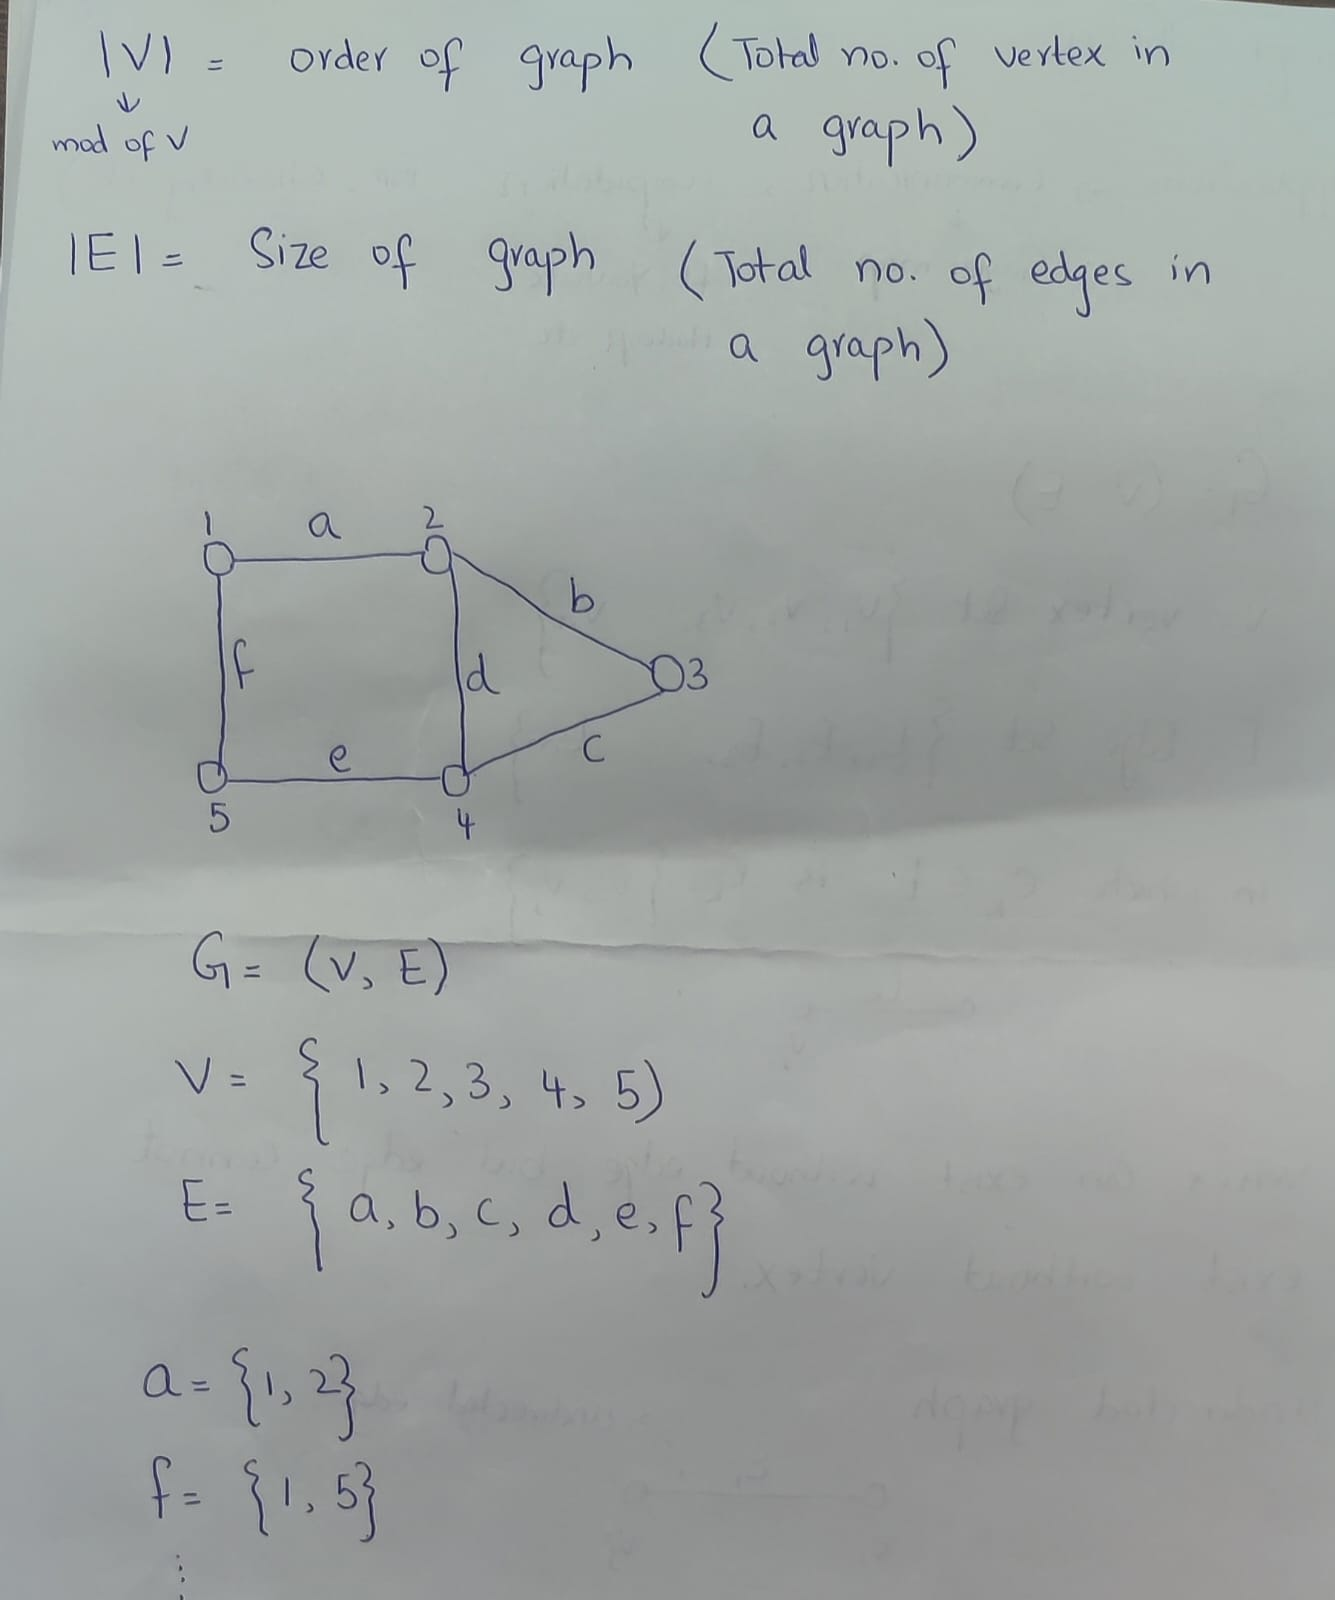 |V| = order of graph (Total no. of vertex in
↓
a graph)
mod of V
|E| = Size of graph (Total no. of edges in
a graph)
1 a 2
b
f d 3
e c
5 4
G = (V, E)
V = { 1, 2, 3, 4, 5)
E = { a, b, c, d, e, f}
a = {1, 2}
f = {1, 5}
⋮